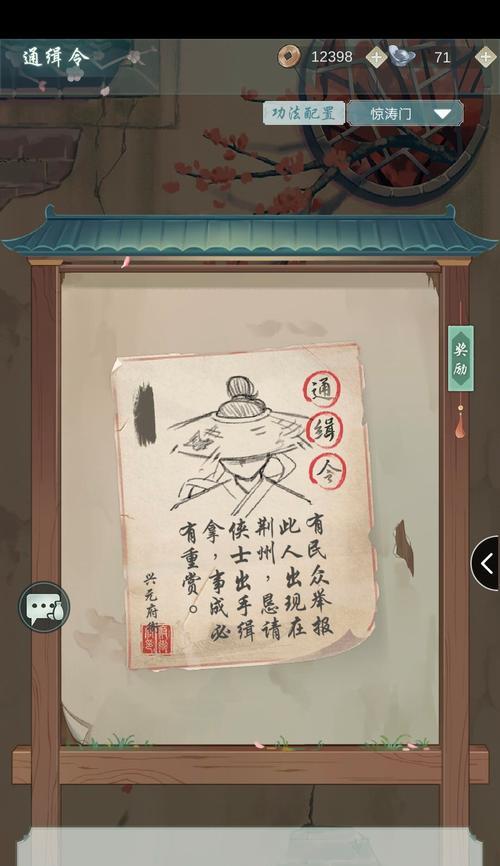 通缉令
12398
71
功法配置
惊涛门
奖励
通缉令
有民众举报
此人出现在
荆州，恳请
侠士出手缉
拿，事成必
有重赏。
兴元府衙